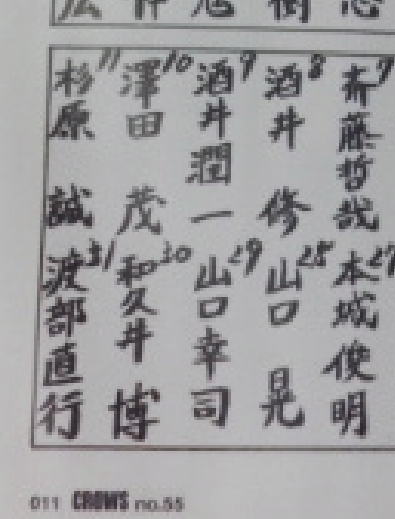 7 斉藤哲哉
8 酒井 修
9 酒井潤一
10 澤田 茂
11 杉原 誠
27 本城俊明
28 山口 晃
29 山口幸司
30 和久井 博
31 渡部直行
011 CROWS no.55